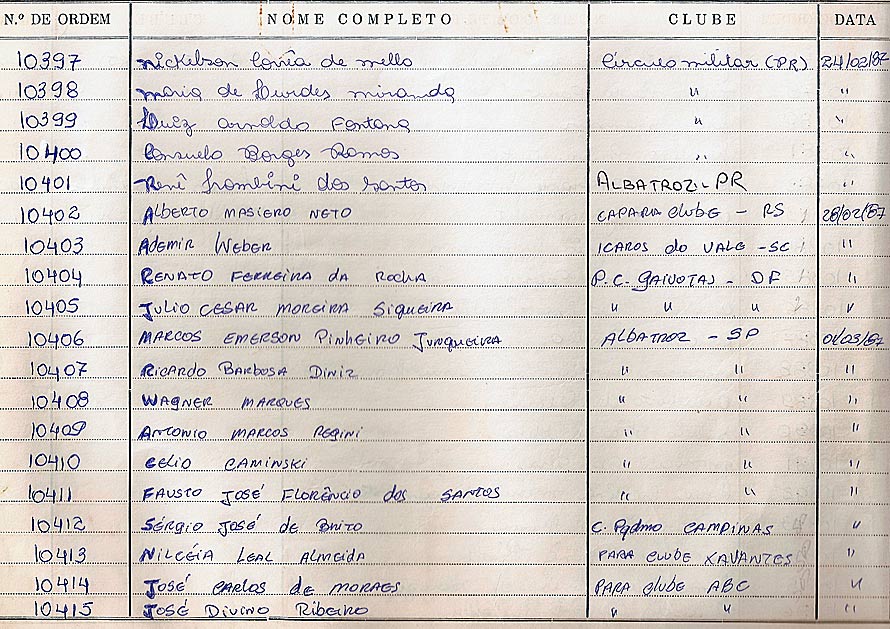 N.º DE ORDEM NOME COMPLETO CLUBE DATA
10397 Nickelson Corrêa de mello Círculo militar (PR) 24/02/87
10398 maria de Lurdes miranda " "
10399 Luiz arnaldo Fontana " "
10400 Consuelo Borges Ramos " "
10401 Renê Trombini dos santos ALBATROZ - PR "
10402 ALBERTO MASIERO NETO CAPARA CLUBE - RS 28/02/87
10403 ADEMIR WEBER ICAROS do VALE - SC "
10404 RENATO FERREIRA DA ROCHA P.C. GAIVOTAS - DF "
10405 JULIO CESAR MOREIRA SIQUEIRA " " " "
10406 MARCOS EMERSON PINHEIRO JUNQUEIRA ALBATROZ - SP 01/03/87
10407 RICARDO BARBOSA DINIZ " " "
10408 WAGNER MARQUES " " "
10409 ANTONIO MARCOS REGINI " " "
10410 CELIO CAMINSKI " " "
10411 FAUSTO JOSÉ FLORÊNCIO dos SANTOS " " "
10412 SÉRGIO JOSÉ de BRITO C. CAMPINAS "
10413 NILCÉIA LEAL ALMEIDA PARA CLUBE XAVANTES "
10414 JOSÉ CARLOS de MORAES PARA CLUBE ABC "
10415 JOSÉ DIVINO RIBEIRO " " "